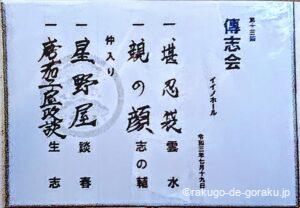 第十三回
傳志会
イイノホール
令和三年七月十九日
一 堪忍袋 雲水
一 親の顔 志の輔
仲入り
一 星野屋 談春
一 唐茄子屋政談 生志
©rakugo-de-goraku.jp